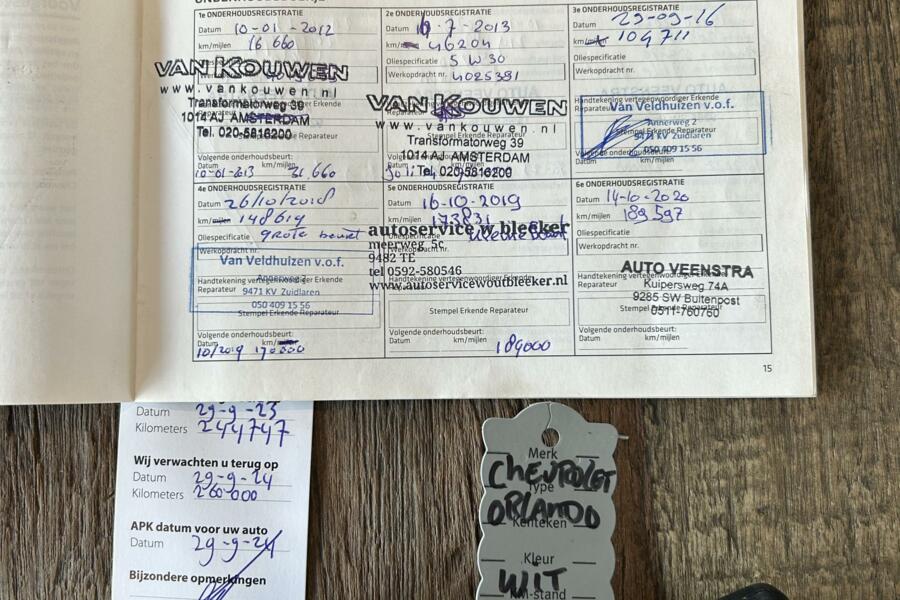 1e ONDERHOUDSREGISTRATIE
Datum 10-01-2012
km/mijlen 16 660
VAN KOUWEN
www.vankouwen.nl
Werkopdracht
Transformatorweg 39
1014 AJ AMSTERDAM
Tel. 020-5816200
Volgende onderhoudsbeurt:
Datum km/mijlen
31.660
2e ONDERHOUDSREGISTRATIE
Datum 16-7-2013
km/ 46204
Oliespecificatie 5 W 30
Werkopdracht nr. 4025391
VAN KOUWEN
www.vankouwen.nl
Stempel Erkende Reparateur
Transformatorweg 39
1014 AJ AMSTERDAM
Tel. 020-5816200
3e ONDERHOUDSREGISTRATIE
Datum 29-09-16
km/ 104711
Oliespecificatie
Werkopdracht nr.
Handtekening vertegenwoordiger Erkende
Reparateur
Van Veldhuizen v.o.f.
Annerweg 2
Stempel Erkende Reparateur
9471 KV Zuidlaren
050 409 15 56
Volgende onderhoudsbeurt:
Datum km/mijlen
4e ONDERHOUDSREGISTRATIE
Datum 26/10/2018
km/mijlen 148619
Oliespecificatie grote beurt
Werkopdracht nr.
Van Veldhuizen v.o.f.
Annerweg 2
Handtekening vertegenwoordiger Erkende
Reparateur 9471 KV Zuidlaren
050 409 15 56
Stempel Erkende Reparateur
Volgende onderhoudsbeurt:
Datum km/
10/2019 170000
5e ONDERHOUDSREGISTRATIE
Datum 16-10-2019
km/mijlen 173831
Oliespecificatie kleine beurt
autoservice w bleeker
meerweg 5c
Werkopdracht nr.
9482 TE
tel 0592-580546
Handtekening vertegenwoordiger Erkende
www.autoservicewoutbleeker.nl
Stempel Erkende Reparateur
Volgende onderhoudsbeurt:
Datum km/mijlen
189000
6e ONDERHOUDSREGISTRATIE
Datum 14-10-2020
km/mijlen 189597
Oliespecificatie
Werkopdracht nr.
AUTO VEENSTRA
Handtekening vertegenwoordiger Erkende
Reparateur Kuipersweg 74A
9285 SW Buitenpost
Stempel Erkende Reparateur
0511-760760
Volgende onderhoudsbeurt:
Datum km/mijlen
15
Datum 29-9-23
Kilometers 244747
Wij verwachten u terug op
Datum 29-9-24
Kilometers 260-000
APK datum voor uw auto
Datum 29-9-24
Bijzondere opmerkingen
Merk
CHEVROLET
Type
ORLANDO
Kenteken
Kleur
WIT
KM-stand